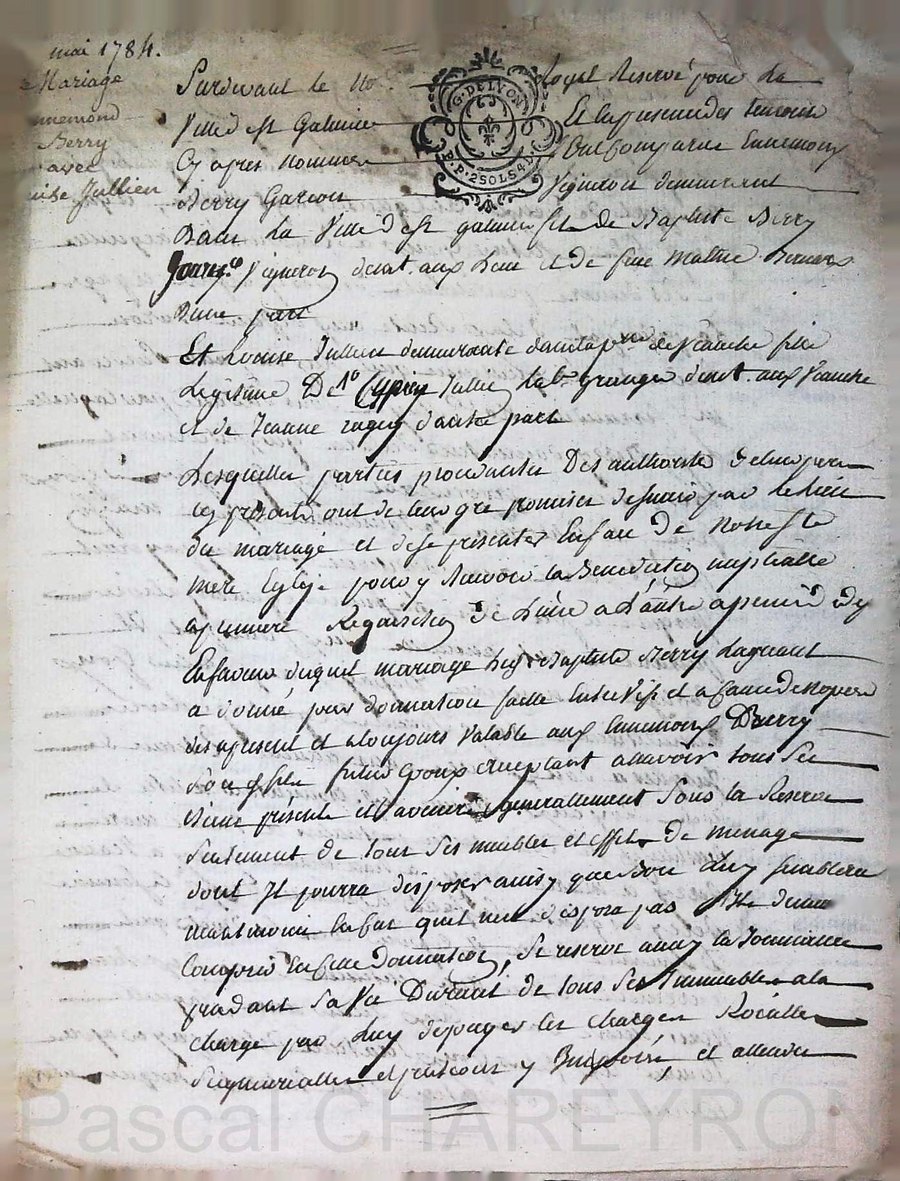 mai 1784.
Mariage
nnemond
Berry
avec
uise Jullien
G. DE LYON
P. P. 2 SOLS 4 D.
Pardevant le No Royal Reservé pour La
Ville de St Galmier Et En presence des temoins
Cy apres Nommes Est Comparu Ennemond
Berry Garcon Vigneron demeurant
Dans La Ville de St galmier fils de Baptiste Berry
Vigneron demt. aux Lieu et de feue
D'une part
Et Louise Jullien demeurante dans la pss de Veauche fille
Legitime De Jullien Lab. Granger demt. aux Veauche
et de Jeanne d'autre part
Lesquelles parties procedantes Des authorités de leur pere
Cy presents ont de leur gre promises de s'unir par le Lien
du mariage et de se presenter En face de Notre Ste
mere Eglize pour y Recevoir la Benediction nuptialle
a premiere Requisition de L'une a L'autre a peine de
En faveur duquel mariage Baptiste Berry Lagneant
a donné par donnation faitte Entre Vifs et a Cause de Nopces
des apresent et a toujours Valable aux Ennemond Berry
son fils futur Epoux acceptant a scavoir tous ses
Biens présents et avenirs generallement Sous la Reserve
Seulement de tous ses meubles et effets de menage
dont Il pourra disposer ainsy que bon Luy semblera
neantmoins En Cas quil nen dispoza pas Ils demeu
Compris En Cette Donnation, Se reserve aussy la Jouissance
pendant sa Vie Durant de tous ses Immeubles a la
charge par Luy de payer les charges Roialles
Seigneurialles et y Imposées et attendu
Pascal CHAREYRON